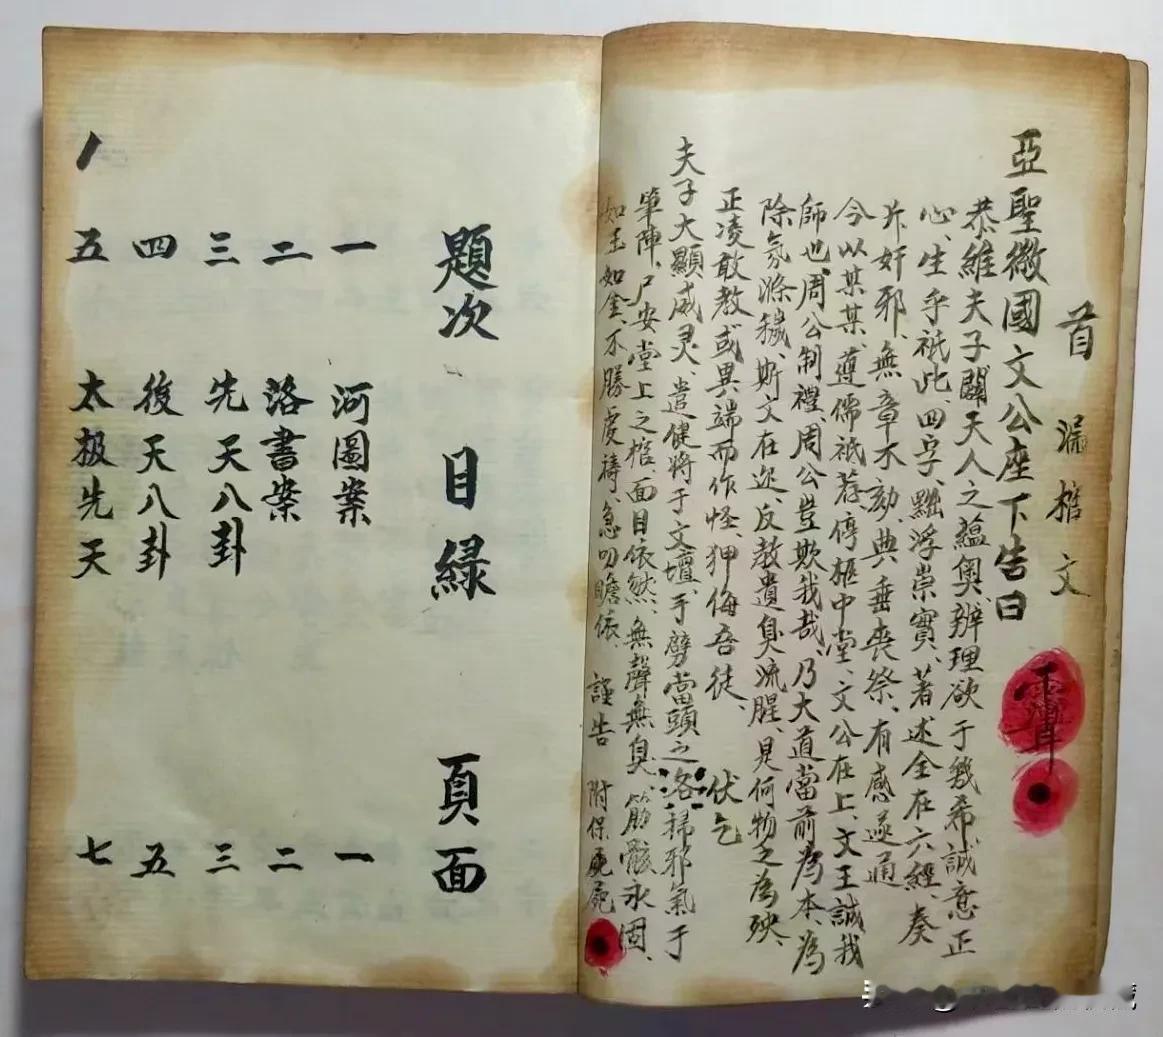 首 漏棺文
亞聖徽國文公座下告曰
恭維夫子闢天人之蘊奧、辨理欲于幾希誠意正
心、生乎祇此、四字、黜浮崇實、著述全在六經、奏
斥奸邪、無章不劾、典垂喪祭、有感遂通
今以某某、遵儒祇荐、停柩中堂、文公在上、文王誠我
師也、周公制禮、周公豈欺我哉、乃大道當前為本、為
除氛滌穢、斯文在迩、反教遺臭流腥、是何物之為殃、
正凌敢教或異端而作怪、狎侮吾徒、 伏乞
夫子大顯威灵、遣健將于文壇、手劈當頭之洛 邪氣于
筆陣、尸安堂上之棺、面目依然、無聲無臭、筋骸永固、
如玉如金、不勝虔禱、急叩瞻依、 謹告 附保屍
題次 目緑 頁面
一 河圖案 一
二 洛書案 二
三 先天八卦 三
四 後天八卦 五
五 太极先天 七